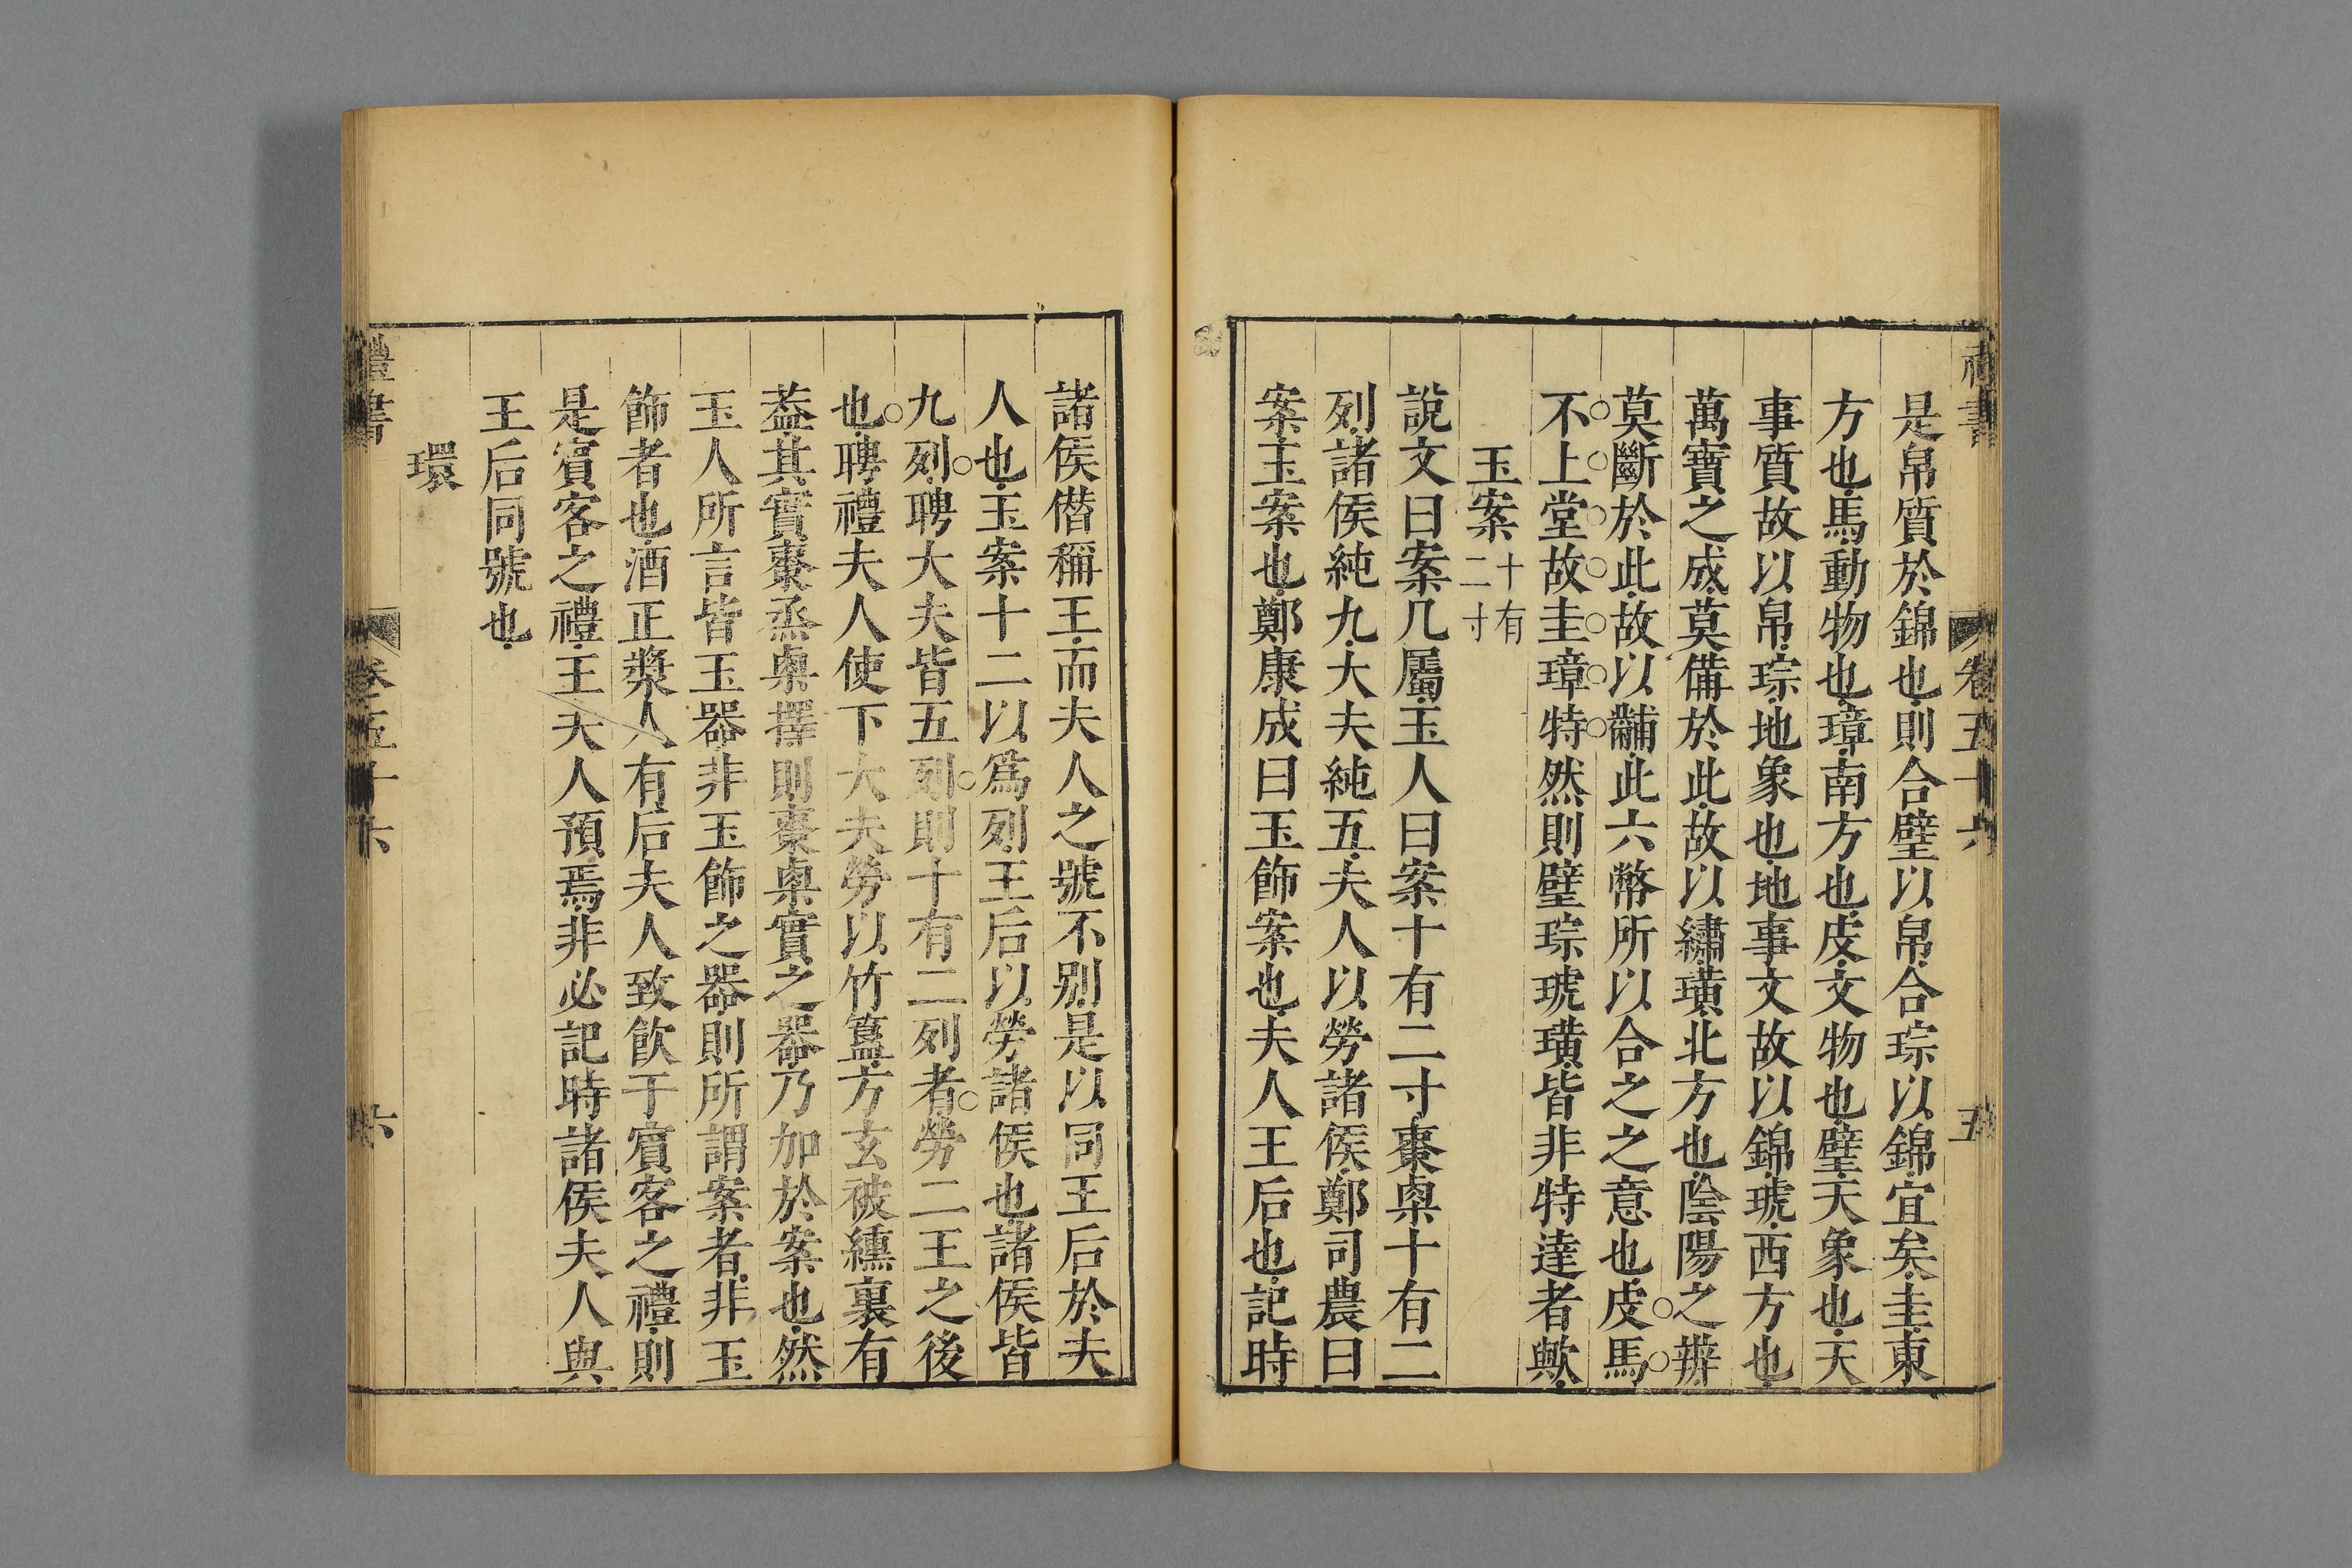 禮書
卷五十六
五
是帛質於錦也則合璧以帛合琮以錦宜矣圭東
方也馬動物也璋南方也皮文物也璧天象也天
事質故以帛琮地象也地事文故以錦琥西方也
萬寶之成莫備於此故以繡璜北方也陰陽之辨
莫斷於此故以黼此六幣所以合之之意也皮馬
不上堂故圭璋特然則璧琮琥璜皆非特達者歟
玉案十有二寸
說文曰案几屬玉人曰案十有二寸棗㮚十有二
列諸侯純九大夫純五夫人以勞諸侯鄭司農曰
案玉案也鄭康成曰玉飾案也夫人王后也記時
諸侯僣稱王而夫人之號不别是以同王后於夫
人也玉案十二以爲列王后以勞諸侯也諸侯皆
九列聘大夫皆五列則十有二列者勞二王之後
也聘禮夫人使下大夫勞以竹簋方玄被纁裏有
葢其實棗烝㮚擇則棗㮚實之器乃加於案也然
玉人所言皆玉器非玉飾之器則所謂案者非玉
飾者也酒正漿人有后夫人致飲于賓客之禮則
是賓客之禮王夫人預焉非必記時諸侯夫人與
王后同號也
環
禮書
卷五十六
六